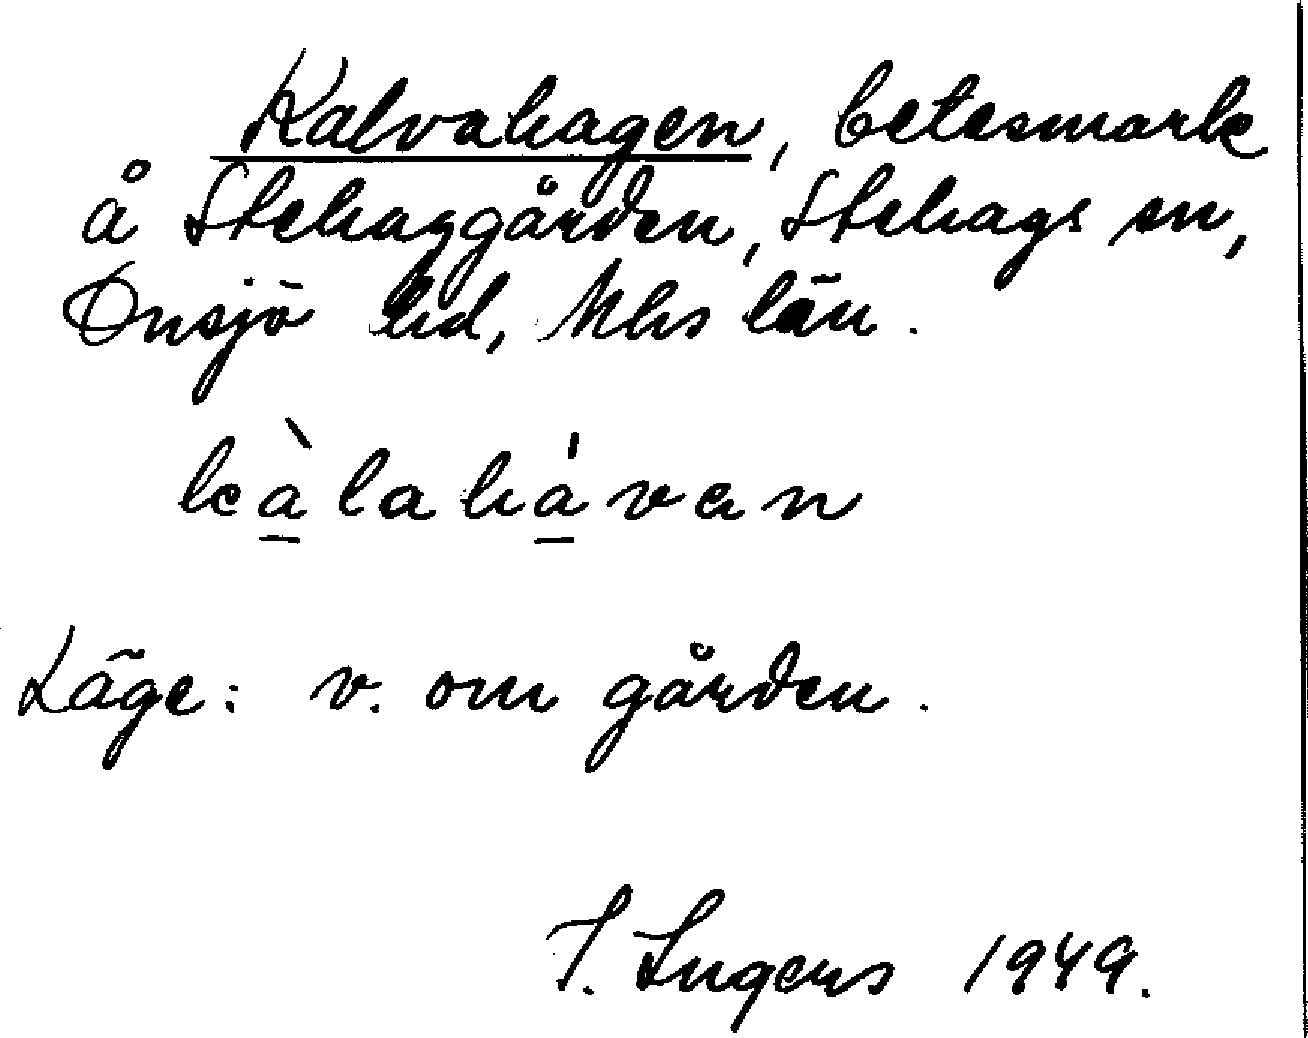 Kalvahagen, betesmark
å Stehaggården, Stehags sn,
Onsjö hd, Mhs län.
kàlahávan
Läge: v. om gården.
I. Ingers 1949.